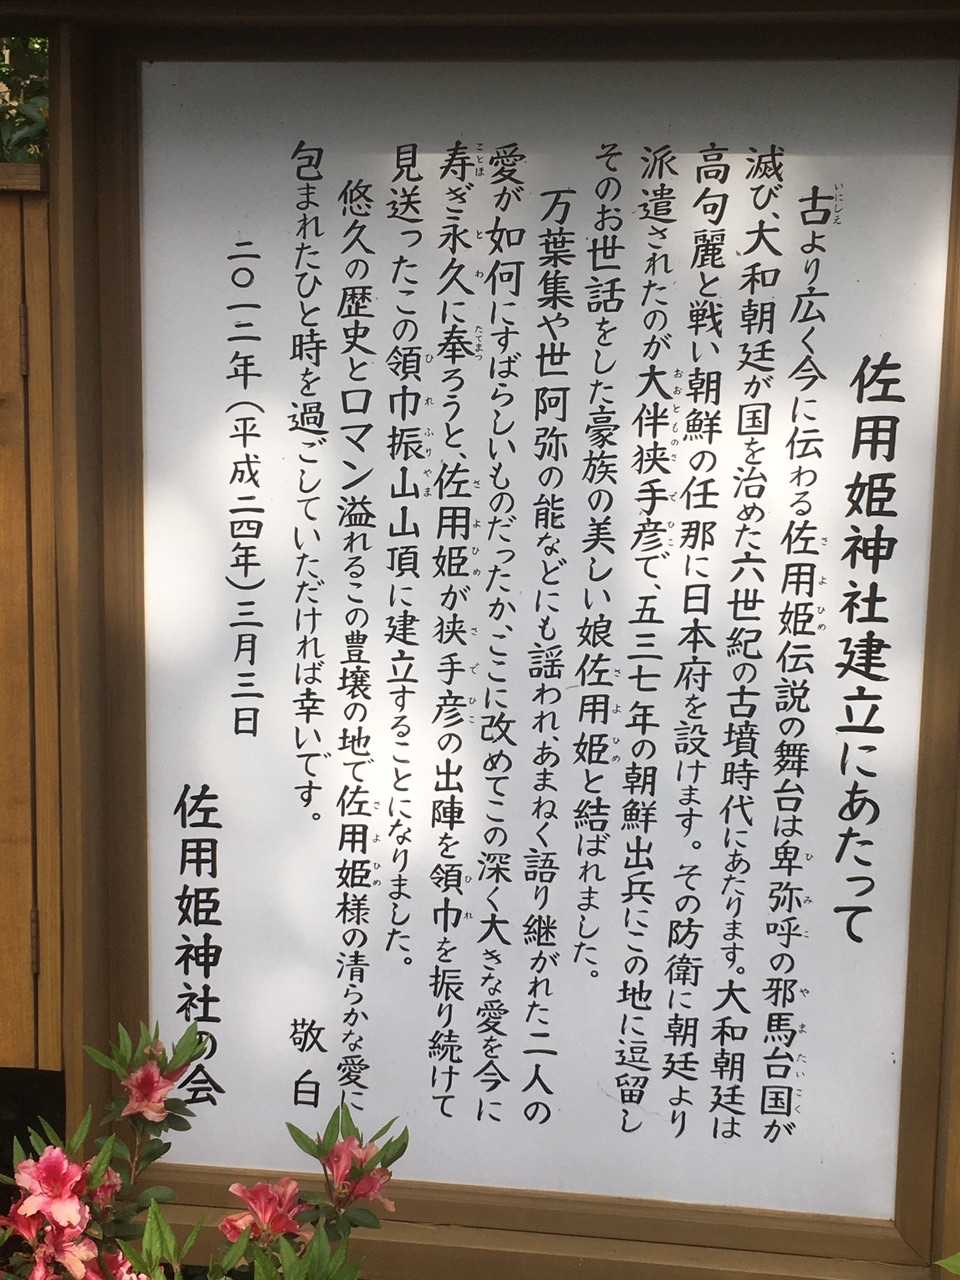 佐用姫神社建立にあたって
古より広く今に伝わる佐用姫伝説の舞台は卑弥呼の邪馬台国が
滅び、大和朝廷が国を治めた六世紀の古墳時代にあたります。大和朝廷は
高句麗と戦い朝鮮の任那に日本府を設けます。その防衛に朝廷より
派遣されたのが大伴狭手彦で、五三七年の朝鮮出兵にこの地に逗留し
そのお世話をした豪族の美しい娘佐用姫と結ばれました。
万葉集や世阿弥の能などにも謡われ、あまねく語り継がれた二人の
愛が如何にすばらしいものだったか、ここに改めてこの深く大きな愛を今に
寿ぎ永久に奉ろうと、佐用姫が狭手彦の出陣を領巾を振り続けて
見送ったこの領巾振山山頂に建立することになりました。
悠久の歴史とロマン溢れるこの豊壌の地で佐用姫様の清らかな愛に
包まれたひと時を過ごしていただければ幸いです。
敬白
二〇一二年（平成二四年）三月三日
佐用姫神社の会